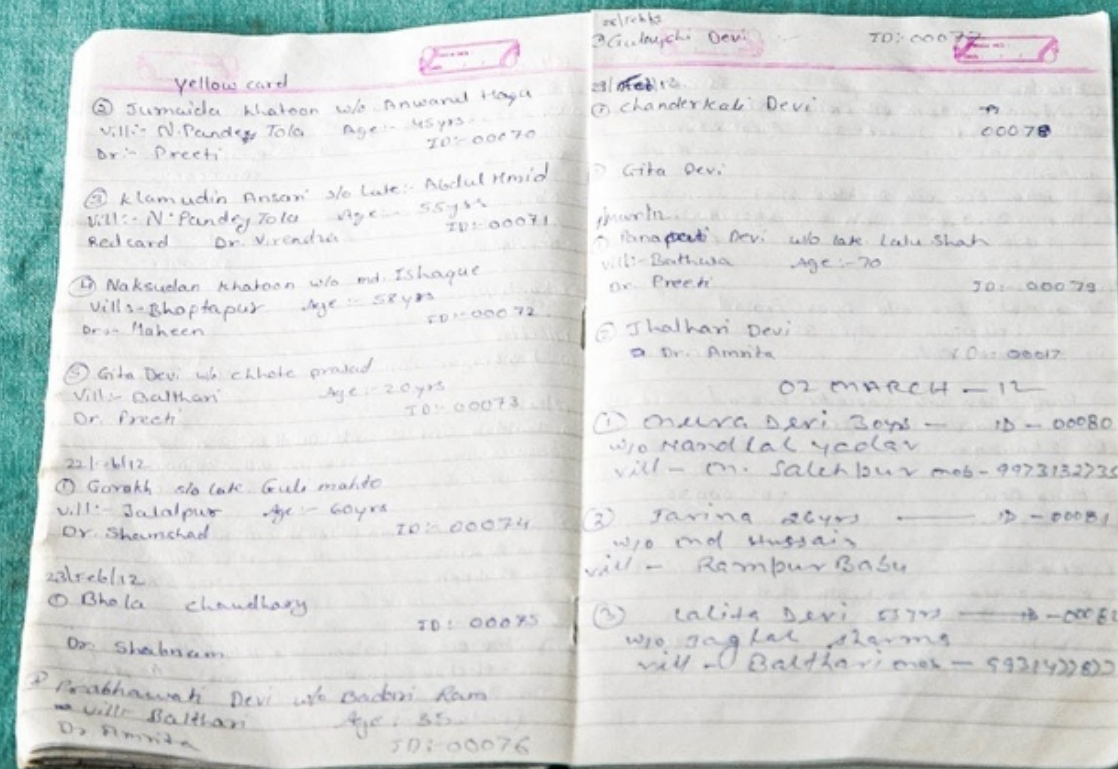 Yellow card
② Jumaida Khatoon w/o Anwarul Haqu
Vill:- N. Pandey Tola Age:- 45yrs
Dr:- Preeti ID:- 00070
③ Klamudin Ansari s/o Late:- Abdul Hmid
Vill:- N. Pandey Tola Age:- 55yrs
Red card Dr. Virendra ID:- 00071
④ Naksudan Khatoon w/o md. Ishaque
Vill:- Bhoptapur Age:- 58yrs
Dr:- Maheen ID:- 00072
⑤ Gita Devi w/o chhote prasad
Vill:- Balthari Age:- 20yrs
Dr. Preeti ID:- 00073
22/Feb/12
① Gorakh s/o late Guli mahto
Vill:- Jalalpur Age:- 60yrs
Dr. Shamshad ID:- 00074
23/Feb/12
① Bhola chaudhary
ID: 00075
Dr. Shabnam
Prabhawati Devi w/o Badri Ram
Vill:- Balthari Age: 35
Dr. Amrita ID:- 00076
Devi ID:- 00077
Chanderkali Devi
00078
Gita Devi
Panapati Devi w/o late. Lalu Shah
Vill:- Bathua Age:- 70
Dr. Preeti ID:- 00079
② Jhalhari Devi
Dr. Amrita ID:- 00017
02 MARCH - 12
① Devi 30yrs - ID - 00080
w/o Nandlal yadav
vill - m. Salehpur mob - 997313273
② Jarina 26yrs ID - 00081
w/o md Hussain
vill - Rampur Babu
③ Lalita Devi 53yrs
w/o Jaglal sharma
vill - Balthari mob -